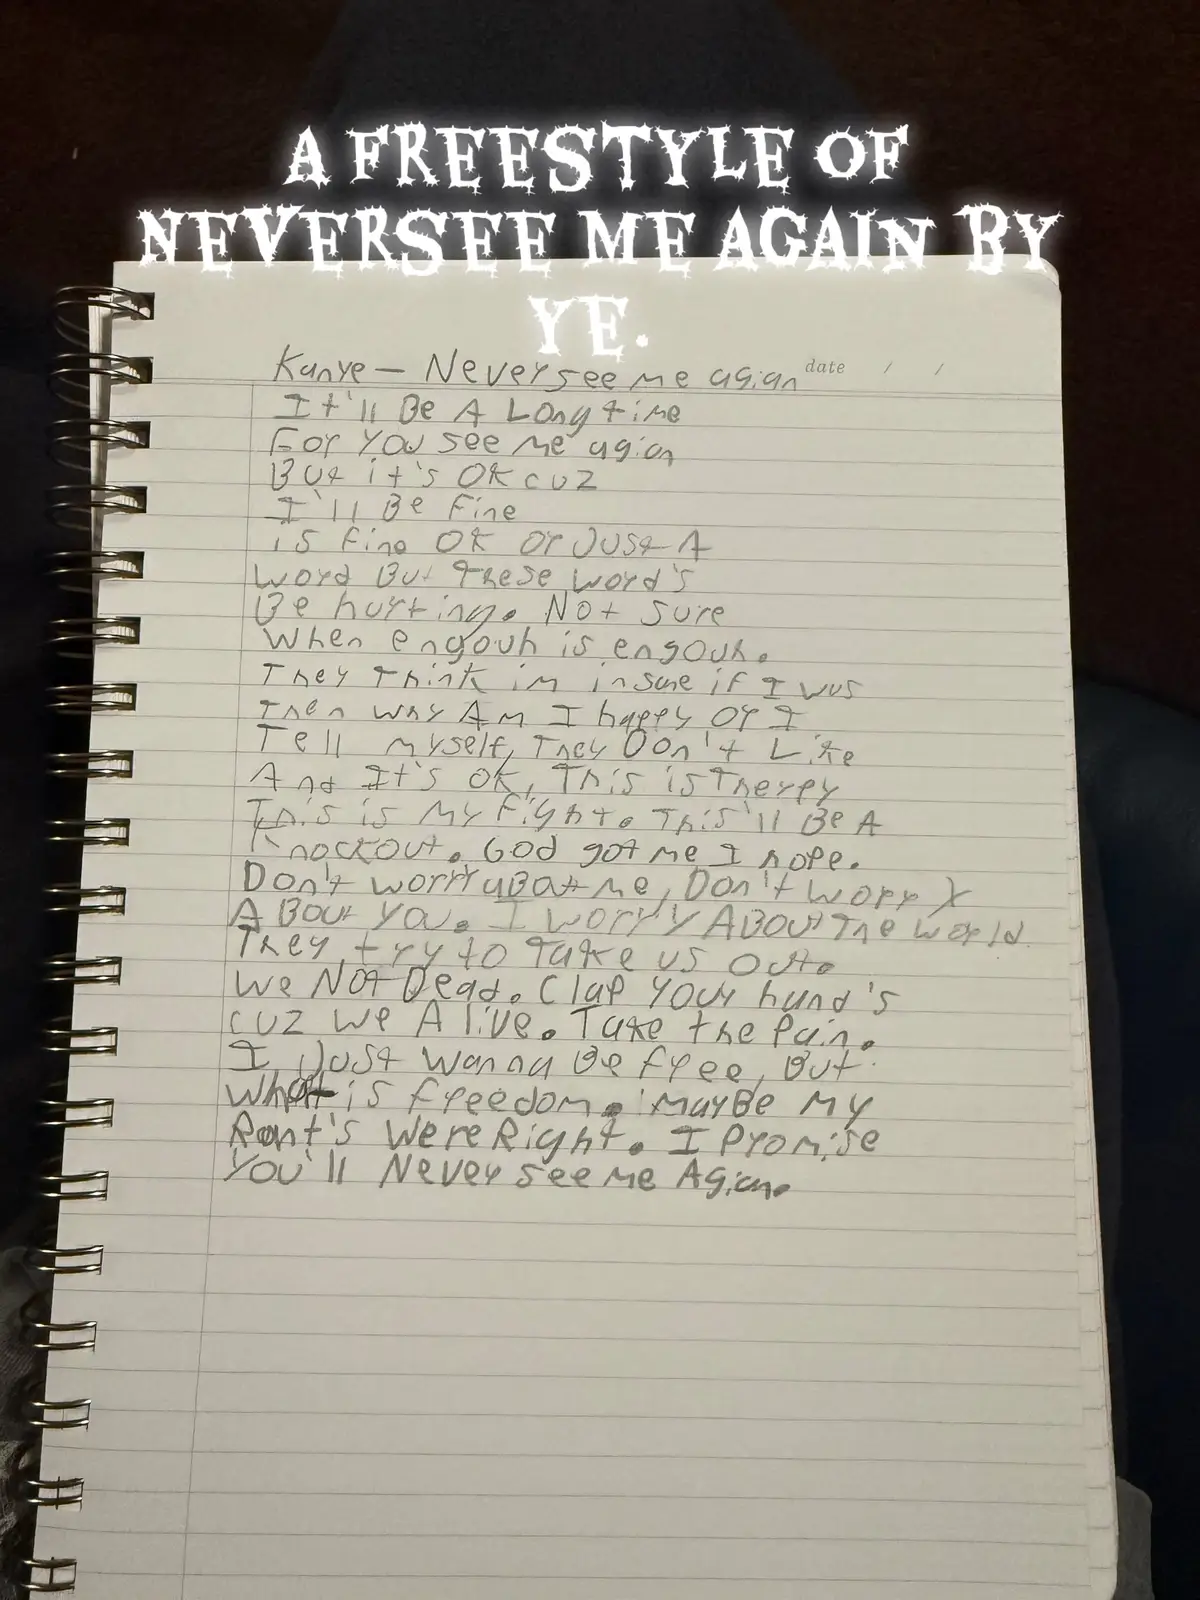 A FREESTYLE OF
NEVERSEE ME AGAIN BY
YE.
Kanye – Never see me agian
date / /
It'll Be A Long time
For you see me agian
But it's Ok cuz
I'll Be Fine
is fine Ok or Just A
word But these word's
Be hurting. Not sure
when engouh is engouh.
They think im insane if I was
Then why Am I happy or I
Tell myself, They Don't Like
And It's Ok, This is Therepy
This is my fight. This'll Be A
Knockout. God got me I hope.
Don't worry aBoat me, Don't worry
ABout you. I worry ABout The world.
They try to take us out.
We Not Dead. Clap your hand's
cuz we Alive. Take the Pain.
I Just wanna Be free, But
What is freedom. mayBe my
Rant's were Right. I Promise
You'll Never see me Agian.